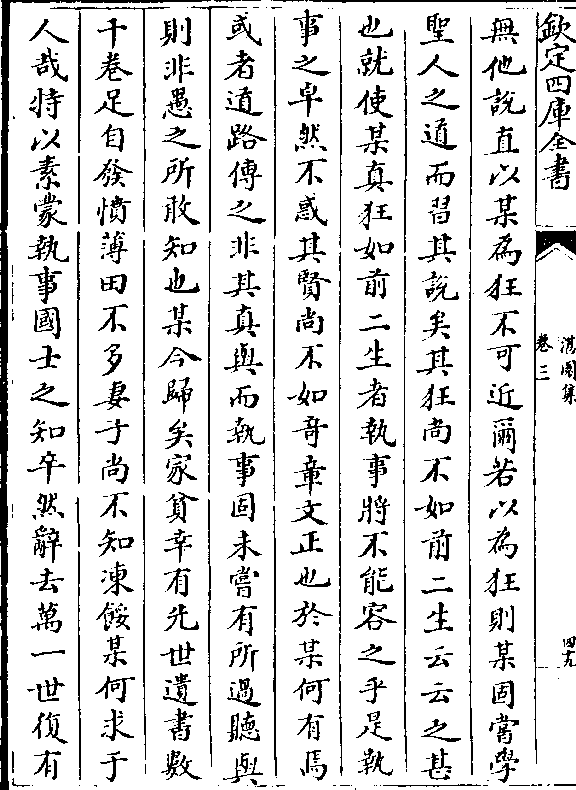 欽定四庫全書
湛園集
卷三
四九
無他說直以某為狂不可近爾若以為狂則某固嘗學
聖人之道而習其說矣其狂尚不如前二生云云之甚
也就使某真狂如前二生者執事將不能容之乎是執
事之卓然不惑其賢尚不如奇章文正也於某何有焉
或者道路傳之非其真與而執事固未嘗有所過聽與
則非愚之所敢知也某今歸矣家貧幸有先世遺書數
千卷足自發憤薄田不多妻子尚不知凍餒某何求于
人哉特以素蒙執事國士之知卒然辭去萬一世復有